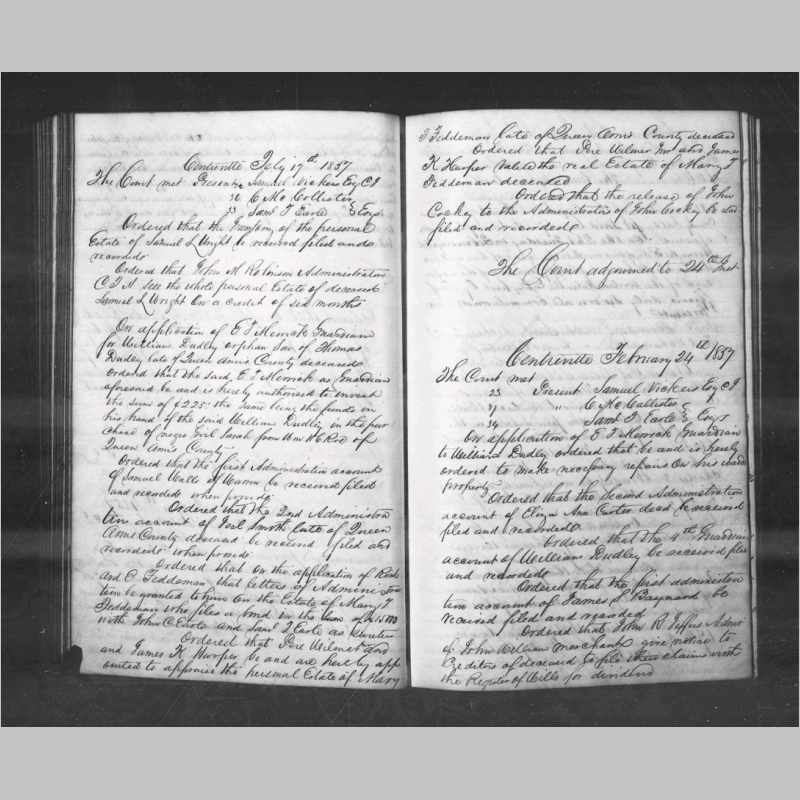 Centreville Feby 17th 1857
The Court met Present Samuel Vickers Esq C J
" C Mc Collister
" Saml T Earle } Esqrs
Ordered that the Inventory of the personal
Estate of Samuel L Wright be received filed and
recorded
Ordered that John M Robinson Administrator
C T A sell the whole personal Estate of deceased
Samuel L Wright on a credit of six months
On application of E T Merrick Guardian
for William Dudley orphan Son of Thomas
Dudley late of Queen Anns County deceased
Ordered that the said E T Merrick as Guardian
aforesaid be and is hereby authorised to invest
the sum of $225 the same being the funds in
his hand of the said William Dudley in the pur
chase of negro Girl Sarah from Wm H C Roe of
Queen Anns County
Ordered that the first Administration account
of Samuel Walls of be received filed
and recorded when proved
Ordered that the 2nd Administra
tion account of Joel Smyth late of Queen
Anns County deceased be received filed and
recorded when proved
Ordered that on the application of Rich
ard C Teddeman that letters of Administra
tion be granted to him on the Estate of Mary T
Teddeman who files a bond in the sum of
with John C Earle and Saml T Earle as Sureties
Ordered that Pere Wilmer and
and James K Harper be and are hereby app
ointed to appraise the personal Estate of Mary
T Teddeman late of Queen Anns County deceased
Ordered that Pere Wilmer and James
K Harper value the real Estate of Mary T
Teddeman deceased
Ordered that the release of John
Cockey to the Administrators of John Cockey be
filed and recorded
The Court adjourned to 24th Inst
Centreville February 24th 1857
The Court met
Present Samuel Vickers Esq C J
" C Mc Collister
Saml T Earle } Esqrs
On application of E T Merrick Guardian
to William Dudley ordered that he and is hereby
ordered to make necessary repairs on his wards
property
Ordered that the Second Administration
account of Eliza Ann Carter decd be received
filed and recorded
Ordered that the 4th Guardian
account of William Dudley be received filed
and recorded
Ordered that the first administra
tion account of James S Baynard be
received filed and recorded
Ordered that John B Administrator
of John William Merchant give notice to
Creditors of deceased to file their claims with
the Register of Wills for dividend